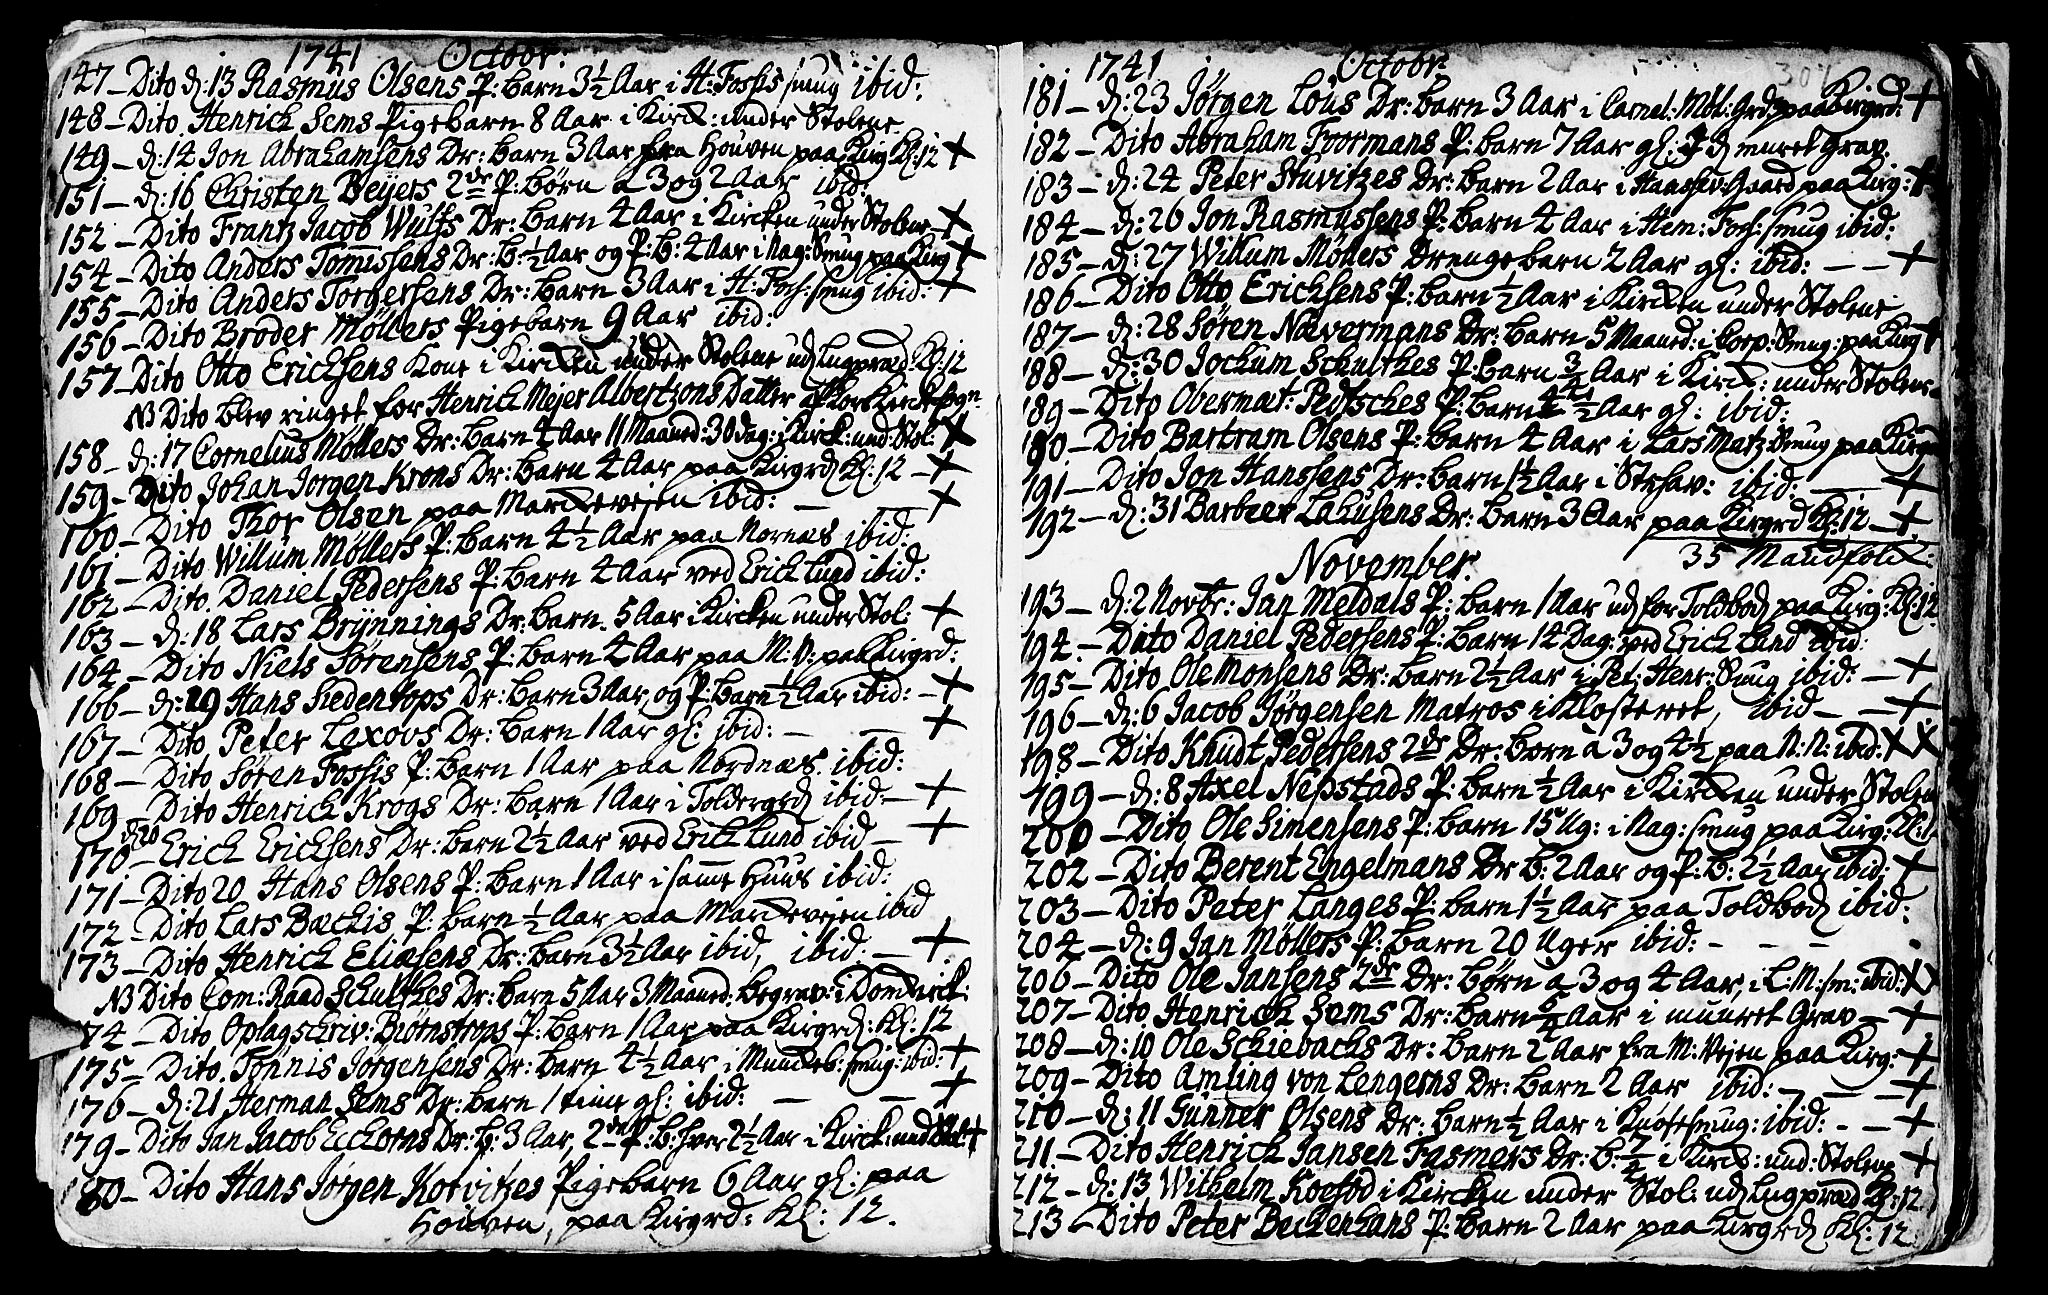 1741 Octobr:
147 – Dito d: 13 Rasmus Olsens P: barn 3 1/2 Aar i H: Foshs smug ibid:
148 – Dito Henrich Sems Pigebarn 8 Aar i Kirck: under Stolene
149 – d: 14 Jon Abrahamsens Dr: barn 3 Aar fra Houven paa Kirg: Kl: 12 +
151 – d: 16 Christen Beyers 2de P: børn a 3 og 2 Aar ibid:
152 – Dito Frantz Jacob Wulfs Dr: barn 4 Aar i Kircken under Stolene – +
154 – Dito Anders Tomissens Dr: B: 1/2 Aar og P: B: 4 Aar i Nag: Smug paa Kirg +
155 – Dito Anders Torgersens Dr: barn 3 Aar i H: Fosh: smug ibid: +
156 – Dito Broder Møllers Pigebarn 9 Aar ibid:
157 – Dito Otto Ericksens Kone i Kircken under Stolene ud Lugpræd. Kl: 12
NB Dito blev ringet for Henrich Meyer Albertzons Datter
158 – d: 17 Cornelius Møllers Dr: barn 4 Aar 11 Maaned: 30 dag: i Kirck: und: Stol: +
159 – Dito Johan Jørgen Krons Dr: barn 4 Aar paa Kirgrd Kl: 12 – +
160 – Dito Thor Olsen paa Marckevejen ibid: – +
161 – Dito Willum Møllers P: barn 4 1/2 Aar paa Nornæs ibid:
162 – Dito Daniel Pedersens P: barn 4 Aar ved Erich Lund ibid:
163 – d: 18 Lars Brynnings Dr: barn 5 Aar i Kircken under Stol: +
164 – Dito Niels Sørensens P: barn 4 Aar paa M: V: paa Kirgrd:
166 – d: 19 Hans Siedentops Dr: barn 3 Aar, og P: barn 1/2 Aar ibid: – +
167 – Dito Peter Lexovs Dr: barn 1 Aar gl: ibid: – – +
168 – Dito Søren Fossis P: barn 1 Aar paa Nordnæs ibid:
169 – Dito Henrich Krogs Dr: barn 1 Aar i Toldergrd ibid – +
170 – d 20 Erich Ericksens Dr: barn 2 1/2 Aar ved Erich Lund ibid – +
171 – Dito 20 Hans Olsens P: barn 1 Aar i samme Huus ibid:
172 – Dito Lars Bæckis P: barn 1/2 Aar paa Marckevejen ibid
173 – Dito Henrich Eliæsens Dr: barn 3 1/2 Aar ibid, ibid: – +
NB Dito Com: Raad Schultzes Dr: barn 5 Aar 3 Maaned: begrav: i Domkirck:
74 – Dito Oplagschriv: Biørnstrops P: barn 1 Aar paa Kirgrd: Kl: 12
175 – Dito Tønnis Jørgensens Dr: barn 4 1/2 Aar i Munckeb: smug: ibid: +
176 – d: 21 Herman Sems Dr: barn 1 time gl: ibid: – – +
179 – Dito Jan Jacob Eckorns Dr: b: 3 Aar, 2de P: b: hver 2 1/2 Aar i Kirck: und Stol: +
180 – Dito Hans Jørgen Korvitzes Pigebarn 6 Aar gl: paa
Houven, paa Kirgrd: Kl: 12.
1741 Octobr: 307
181 – d: 23 Jørgen Lous Dr: barn 3 Aar i Cornel: Møl: Grd: paa Kirgrd: +
182 – Dito Abraham Foormans P: barn 7 Aar gl: muret Grav.
183 – d: 24 Peter Stuvitzes Dr: barn 2 Aar i Gaard paa Kirg: +
184 – d: 26 Jon Rasmussens P: barn 4 Aar i Hem: Fosh: smug ibid:
185 – d: 27 Willum Møllers Drengebarn 2 Aar gl: ibid: – – +
186 – Dito Otto Ericksens P: barn 1/2 Aar i Kircken under Stolene
187 – d: 28 Søren Nævermans Dr: barn 5 Maaned: i Corp: Smug: paa Kirg +
188 – d: 30 Jochum Schultzes P: barn 3/4 Aar i Kirck: under Stolene
189 – Dito Obermæt: Pedtsches P: barn 1/2 Aar gl: ibid:
180 – Dito Bartram Olsens P: barn 4 Aar i Lars Matz Smug paa Kirgrd
191 – Dito Jon Hanssens Dr: barn 1 1/2 Aar i Strhav: ibid: – +
192 – d: 31 Barbeer Lahusens Dr: barn 3 Aar paa Kirgrd Kl: 12 – +
35 Mandfolck:
November.
193 – d: 2 Novbr: Jan Meldals P: barn 1 Aar ud for Toldbod paa Kirg: Kl: 12
194 – Dito Daniel Pedersens P: barn 14 Dag: ved Erich Lund ibid:
195 – Dito Ole Monsens Dr: barn 2 1/2 Aar i Pet: Henr: Smug ibid: – +
196 – d: 6 Jacob Jørgensen Matros i Klosteret, ibid – – +
198 – Dito Knudt Pedersens 2de Dr: børn a 3 og 4 1/2 paa N: N: ibid: X X
199 – d: 8 Axel Nepstads P: barn 1/2 Aar i Kircken under Stolen
200 – Dito Ole Simensens P: barn 15 Ug: i Nag: smug paa Kirg: Kl: 12
202 – Dito Berent Engelmans Dr B: 2 Aar og P: B: 2 1/2 Aar ibid: +
203 – Dito Peter Langes P: barn 1 1/2 Aar paa Toldbod ibid:
204 – d: 9 Jan Møllers P: barn 20 Uger ibid: – – –
206 – Dito Ole Jansens 2de Dr: børn a 3 og 4 Aar, i L: M: sm: ibid: X X
207 – Dito Henrich Sems Dr: barn 5/4 Aar i muuret Grav – +
208 – d: 10 Ole Schiebachs Dr: barn 2 Aar fra M: Vejen paa Kirg: +
209 – Dito Amling von Lengerns Dr: barn 2 Aar ibid: – – +
210 – d: 11 Gunner Olsens Dr: barn 1/2 Aar i Knøsesmug: ibid: – – +
211 – Dito Henrich Jansen Fasmers Dr: b: 7/4 i Kirck: und: Stolene +
212 – d: 13 Wilhelm Koefod i Kircken under Stol: ud Lugpræd Kl: 12
213 – Dito Peter Beckenhans P: barn 2 Aar paa Kirgrd Kl: 12